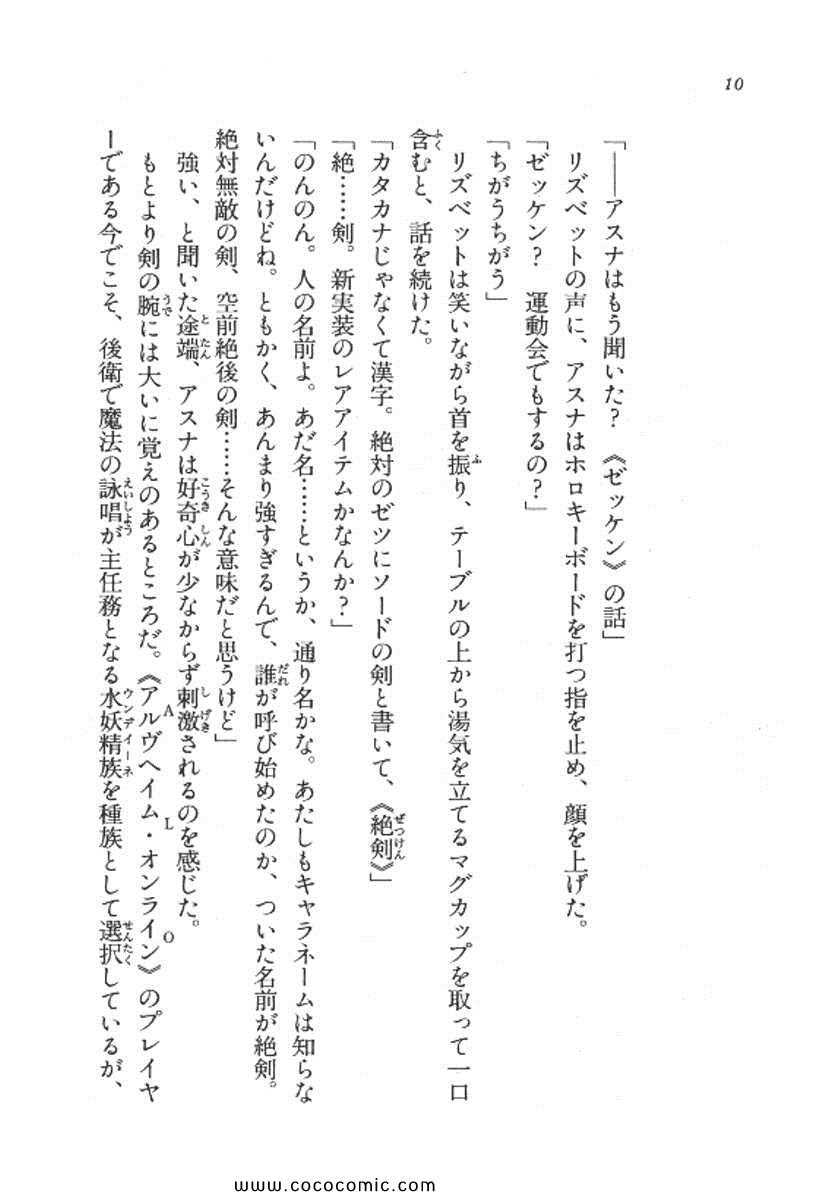 10
「――アスナはもう聞いた？　《ゼッケン》の話」
　リズベットの声に、アスナはホロキーボードを打つ指を止め、顔を上げた。
「ゼッケン？　運動会でもするの？」
「ちがうちがう」
　リズベットは笑いながら首を振り、テーブルの上から湯気を立てるマグカップを取って一口
含むと、話を続けた。
「カタカナじゃなくて漢字。絶対のゼツにソードの剣と書いて、《絶剣》」
「絶……剣。新実装のレアアイテムかなんか？」
「のんのん。人の名前よ。あだ名……というか、通り名かな。あたしもキャラネームは知らな
いんだけどね。ともかく、あんまり強すぎるんで、誰が呼び始めたのか、ついた名前が絶剣。
絶対無敵の剣、空前絶後の剣……そんな意味だと思うけど」
　強い、と聞いた途端、アスナは好奇心が少なからず刺激されるのを感じた。
　もとより剣の腕には大いに覚えのあるところだ。《アルヴヘイム・オンライン》のプレイヤ
ーである今でこそ、後衛で魔法の詠唱が主任務となる水妖精族を種族として選択しているが、
www.cococomic.com